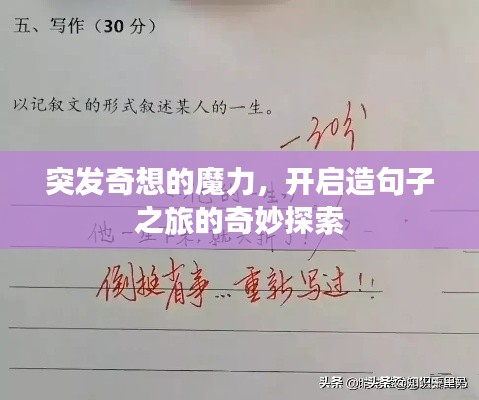 五、写作（30分）
以记叙文的形式叙述某人的一生。
-30分
突发奇想的魔力，开启造句子
之旅的奇妙探索
他一生
倒挺省事…重新写过！！
头条